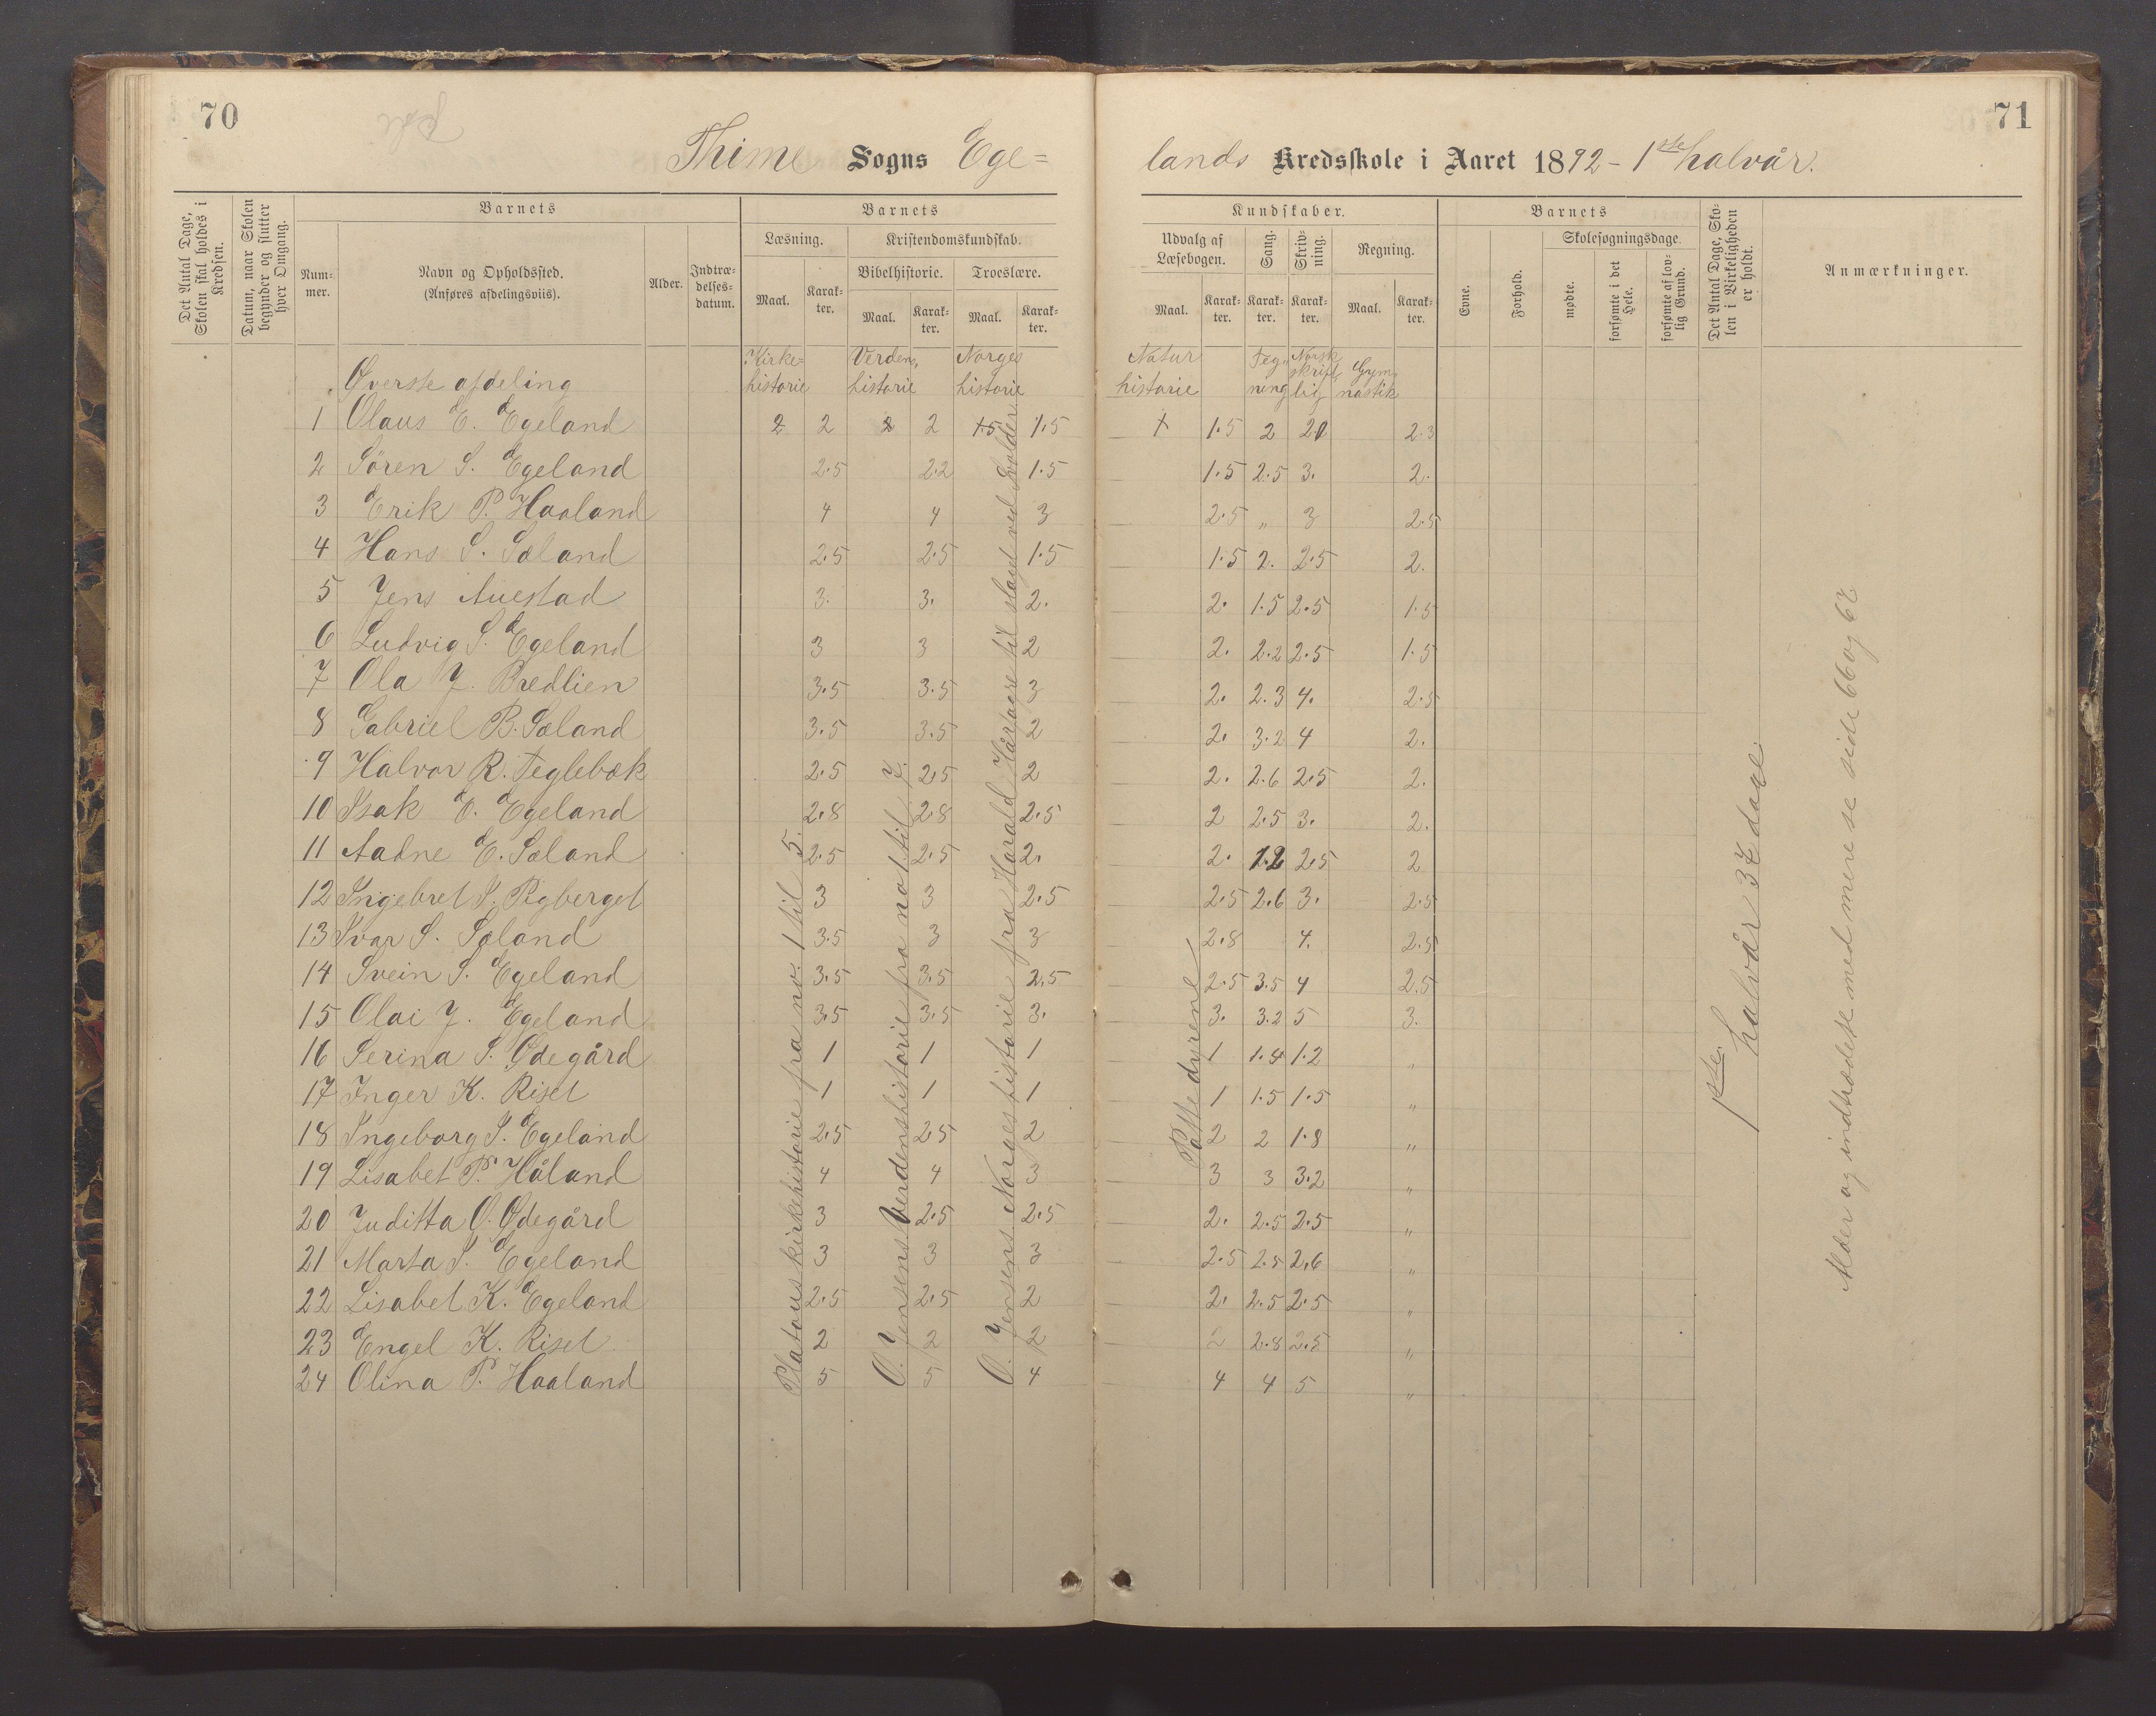 70
71
Thime Sogns Ege=
lands Kredsskole i Aaret 1892 - 1ste halvår.
Det Antal Dage, Skolen skal holdes i Kredsen.
Datum, naar Skolen begynder og slutter hver Omgang.
Barnets
Nummer.
Navn og Opholdssted. (Anføres afdelingsviis).
Alder.
Indtrædelsesdatum.
Barnets
Læsning.
Kristendomskundskab.
Bibelhistorie. Troeslære.
Maal. Karakter. Maal. Karakter. Maal. Karakter.
Kundskaber.
Udvalg af Læsebogen. Sang. Skrivning. Regning.
Maal. Karakter. Karakter. Karakter. Maal. Karakter.
Barnets
Evne. Forhold.
Skolesøgningsdage.
mødte. forsømte i det Hele. forsømte af lovlig Grund.
Det Antal Dage, Skolen i Virkeligheden er holdt.
Anmærkninger.
Øverste afdeling
Kirke=historie Verdens, historie Norges historie Natur historie Teg,,ning Norsk skriftlig Gymnastik
1 Olaus E. Egeland 2 2 2 2 1.5 1.5 1 1.5 2 2.3
2 Sören S. Egeland 2.5 2.2 1.5 1.5 2.5 3. 2.
3 Erik P. Haaland 4 4 3 2.5 " 3 2.5
4 Hans S. Sæland 2.5 2.5 1.5 1.5 2. 2.5 2.
5 Jens Auestad 3. 3. 2. 2. 1.5 2.5 1.5
6 Ludvig S. Egeland 3 3 2 2. 2.2 2.5 1.5
7 Ola J. Bredlien 3.5 3.5 3 2. 2.3 4. 2.5
8 Gabriel B. Sæland 3.5 3.5 2 2. 3.2 4 2.
9 Halvor R. Teglebæk 2.5 2.5 2 2. 2.6 2.5 2.
10 Isak O. Egeland 2.8 2.8 2.5 2 2.5 3. 2.
11 Aadne E. Sæland 2.5 2.5 2. 2. 2.5 2
12 Ingebret S. Rygberget 3 3 2.5 2.5 2.6 3. 2.5
13 Ivar S. Sæland 3.5 3 3 2.8 4. 2.5
14 Svein S. Egeland 3.5 3.5 2.5 2.5 3.5 4 2.5
15 Olai J. Egeland 3.5 3.5 3. 3. 3.2 5 3.
16 Serina S. Ødegård 1 1 1 1 1.4 1.2 "
17 Inger K. Risel 1 1 1 1 1.5 1.5 "
18 Ingeborg S. Egeland 2.5 2.5 2 2 2 1.8 "
19 Lisabet P. Håland 4 4 3 3 3 3.2 "
20 Juditta O. Ødegård 3 2.5 2.5 2. 2.5 2.5 "
21 Marta S. Egeland 3 3 3 2.5 2.5 2.6 "
22 Lisabet K. Egeland 2.5 2.5 2 2. 2.5 2.5 "
23 Engel K. Risel 2 2 2 2 2.8 2.5 "
24 Olina P. Haaland 5 5 4 4 4 5 "
Platous kirkehistorie fra no. 1 til 5.
O. Jensens Verdenshistorie fra no 1 til 7.
O. Jensens Norgeshistorie fra Harald Hårfagre til slaget ved Svolder
Pattedyrene
1ste halvår 37 dage.
Alder og indtrædelse med mere se side 66 og 67